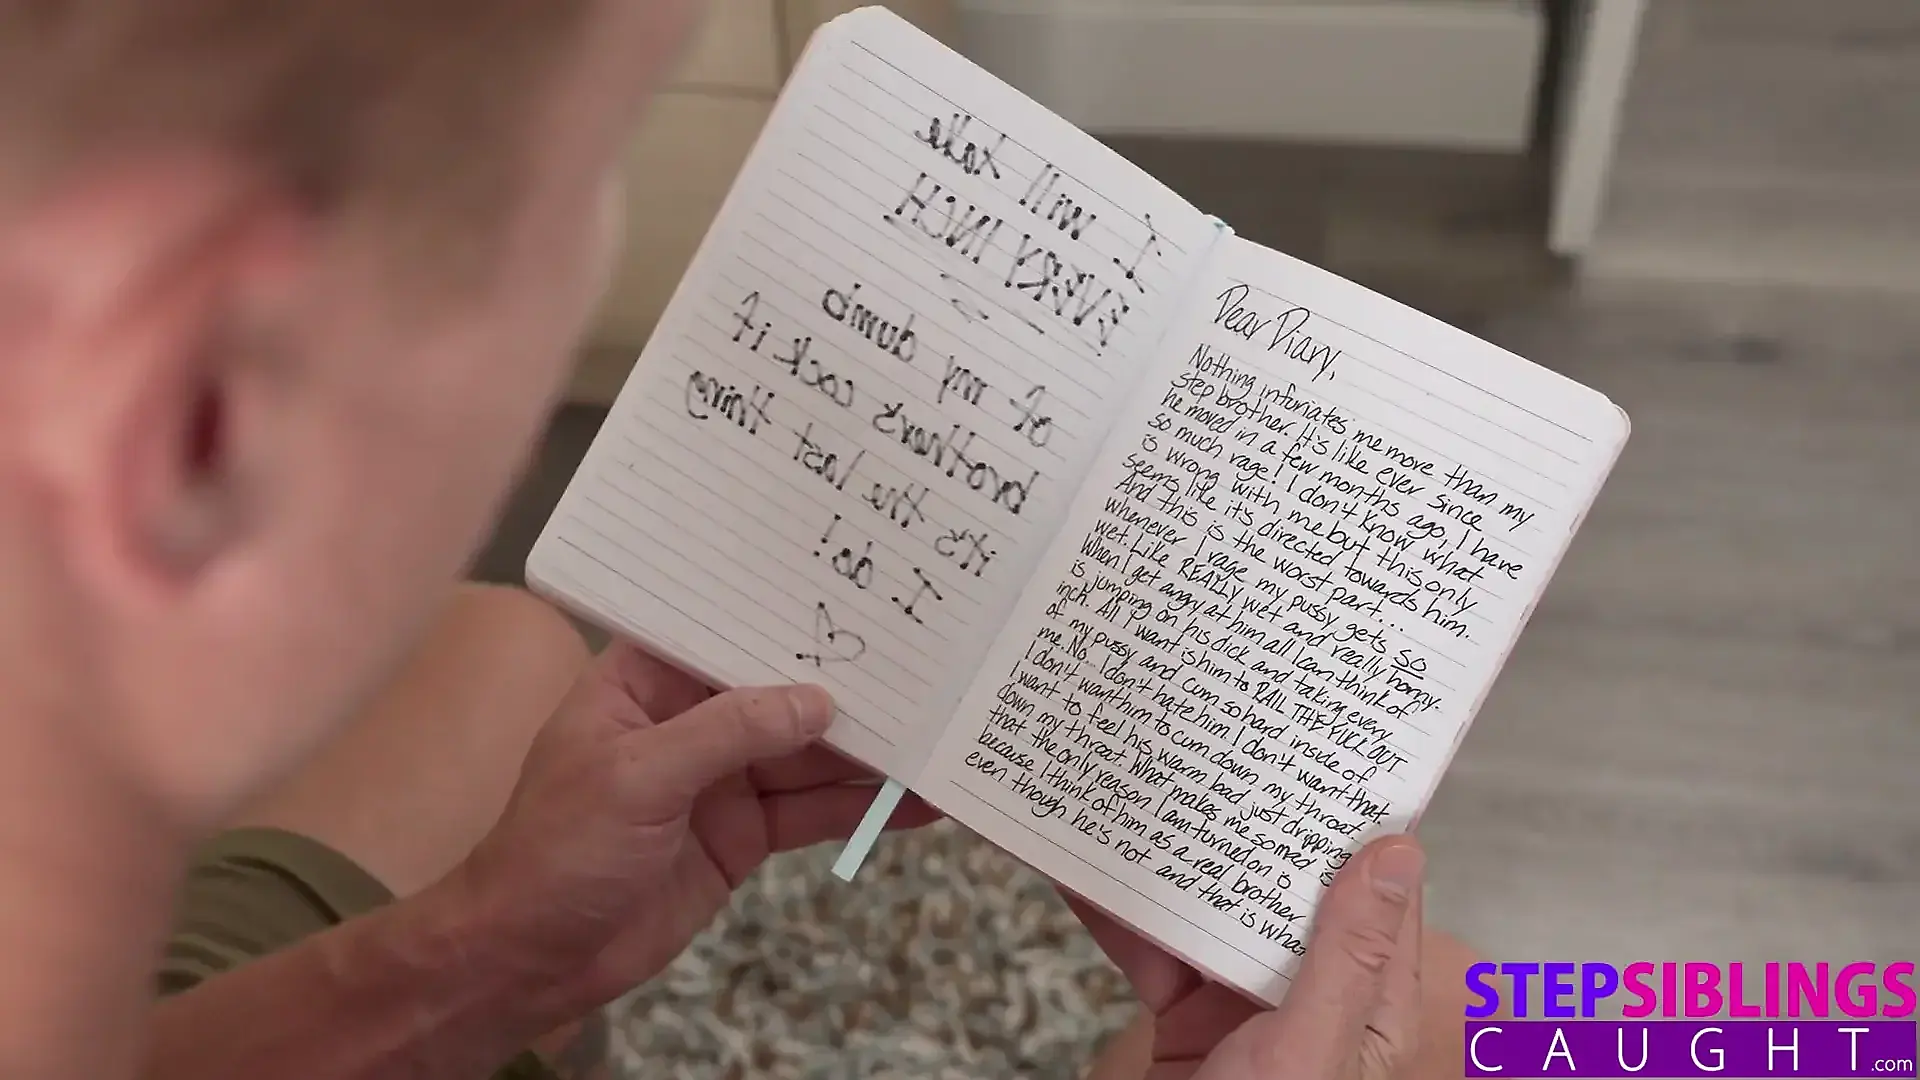 I will take
EVERY INCH
of my dumb
brothers cock if
it's the last thing
I do!
Dear Diary,
Nothing infuriates me more than my
step brother. It's like ever since
he moved in a few months ago, I have
so much rage! I don't know what
is wrong with me but this only
seems like it's directed towards him.
And this is the worst part...
whenever I rage my pussy gets so
wet. Like REALLY wet and really horny.
When I get angry at him all I can think of
is jumping on his dick and taking every
inch. All I want is him to RAIL THE FUCK OUT
of my pussy and cum so hard inside of
me. No... I don't hate him. I don't want that.
I don't want him to cum down my throat.
I want to feel his warm load just dripping
down my throat. What makes me so mad is
that the only reason I am turned on is
because I think of him as a real brother
even though he's not and that is what
STEPSIBLINGS
CAUGHT.com